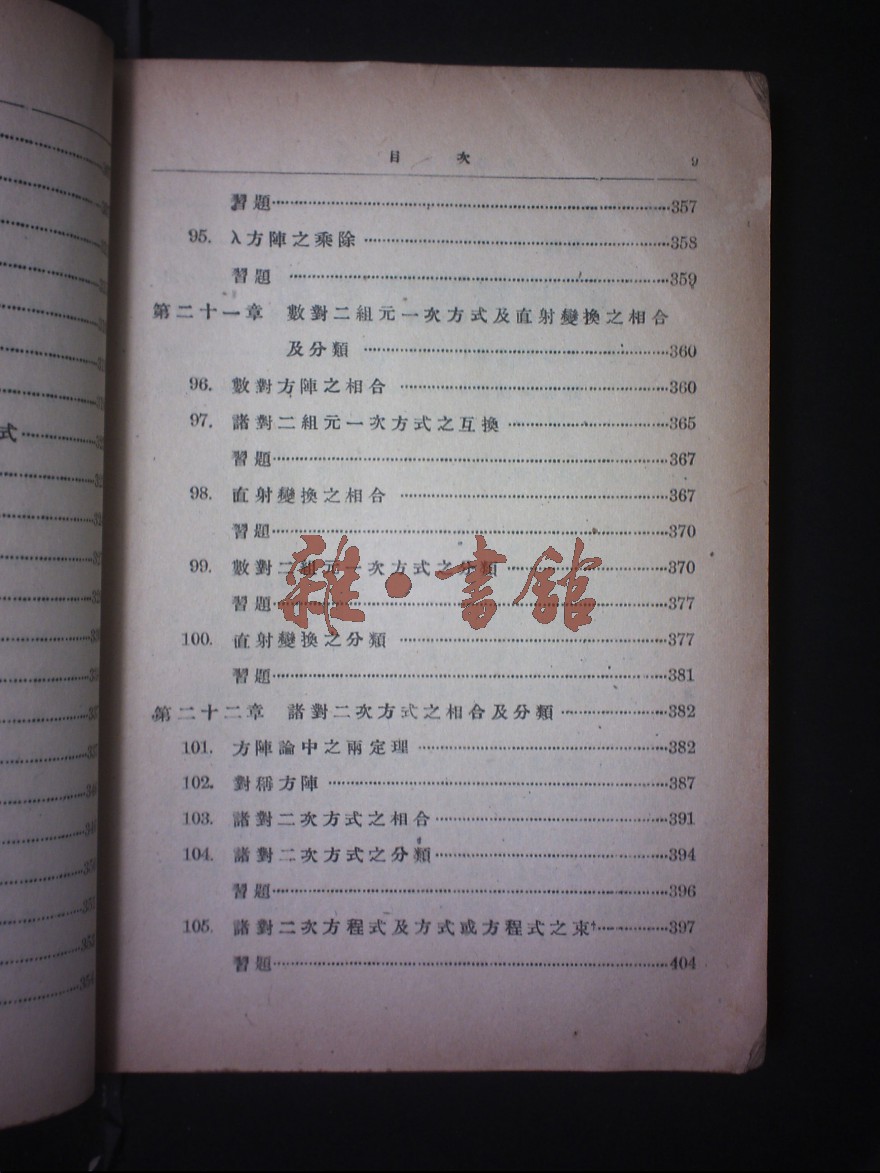 目 次 9
習題……357
95. λ方陣之乘除……358
習題……359
第二十一章 數對二組元一次方式及直射變換之相合
及分類……360
96. 數對方陣之相合……360
97. 諸對二組元一次方式之互換……365
習題……367
98. 直射變換之相合……367
習題……370
99. 數對二組元一次方式之分類……370
習題……377
100. 直射變換之分類……377
習題……381
第二十二章 諸對二次方式之相合及分類……382
101. 方陣論中之兩定理……382
102. 對稱方陣……387
103. 諸對二次方式之相合……391
104. 諸對二次方式之分類……394
習題……396
105. 諸對二次方程式及方式或方程式之束……397
習題……404
雜·書館